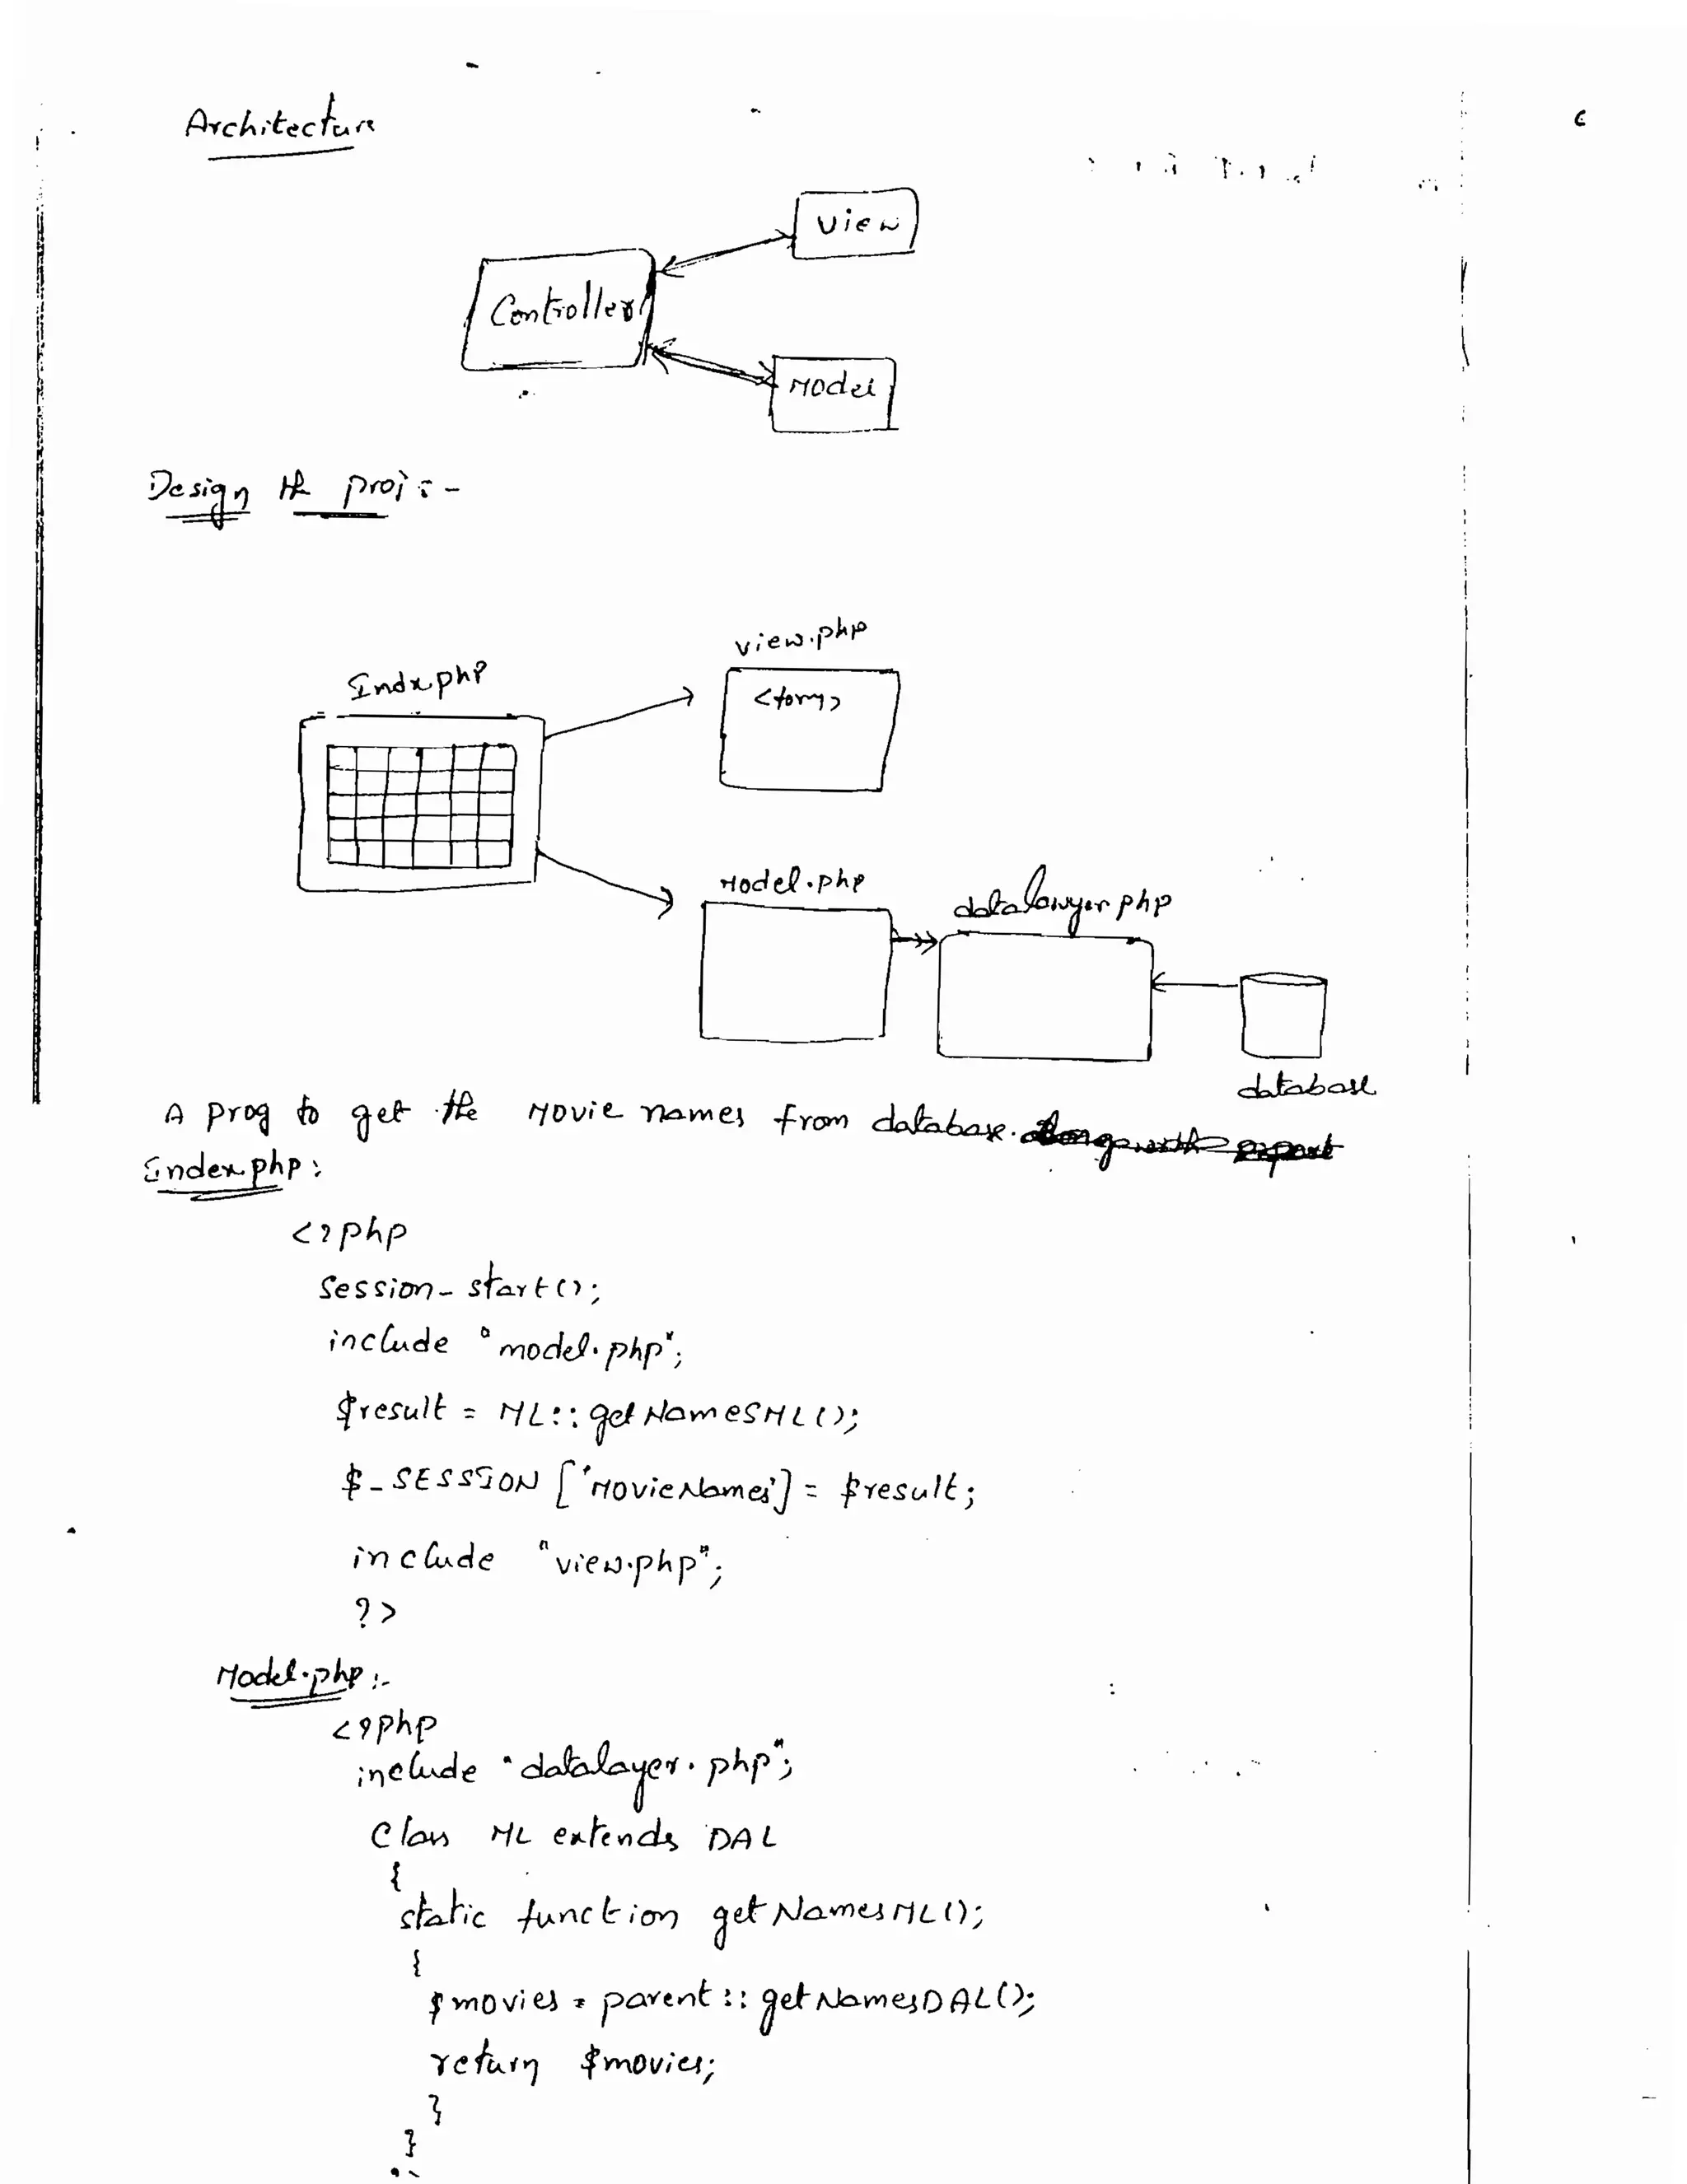 Architecture
View
Controller
Model
Design the proj :-
view.php
Index.php
<form>
Model.php
datalawyer php
database
A prog to get the Movie names from database.
Index.php :
<?php
Session_start();
include "model.php";
$result = ML::getNamesML();
$_SESSION ['MovieNames'] = $result;
include "view.php";
?>
Model.php :-
<?php
include "datalayer.php";
Class ML extends DAL
{
static function getNamesML();
{
$movies = parent::getNamesDAL();
return $movies;
}
}